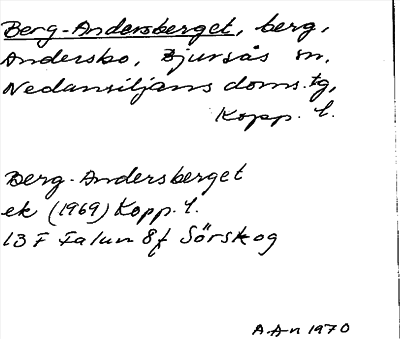 Berg-Andersberget, berg,
Andersbo, Bjursås sn,
Nedansiljans doms.tg,
Kopp. l.
Berg-Andersberget
ek (1969) Kopp. l.
13 F Falun 8f Sörskog
A An 1970